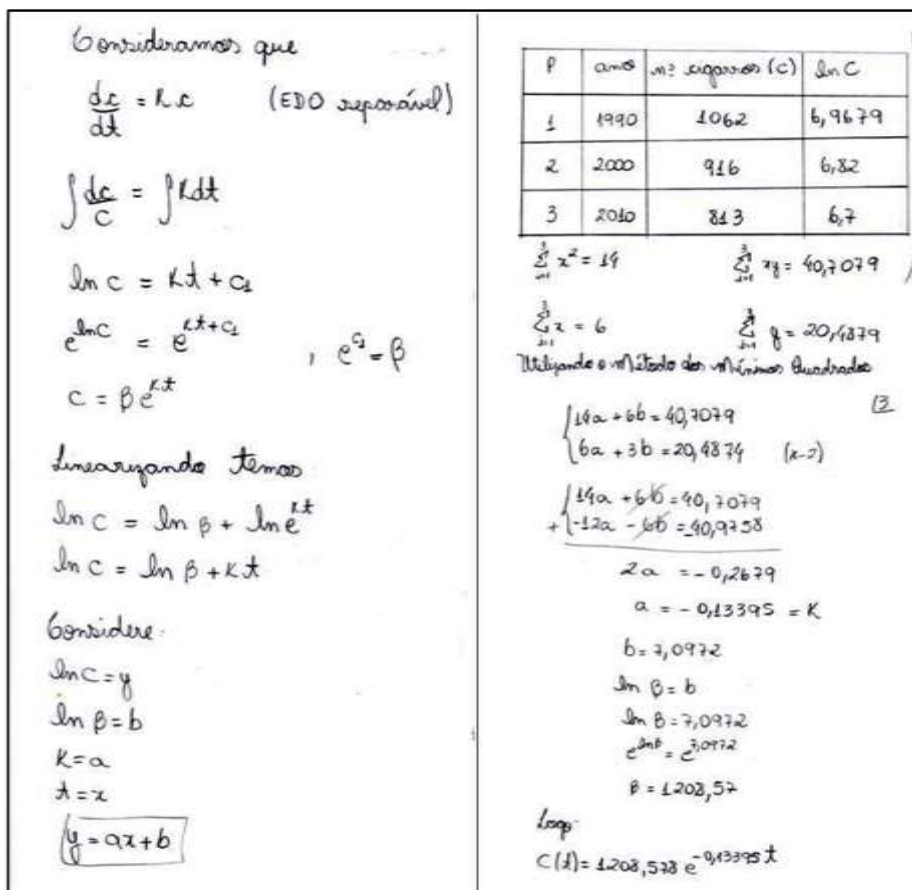 Consideramos que
dc/dt = K.c (EDO separável)
∫ dc/c = ∫ Kdt
ln c = Kt + c₁
e^lnC = e^(Kt+c₁) , e^c₁ = β
C = β e^(K.t)
Linearizando temos
ln C = ln β + ln e^(Kt)
ln C = ln β + Kt
Considere:
ln C = y
ln β = b
K = a
t = x
y = ax + b
P ano nº cigarros (C) ln C
1 1990 1062 6,9679
2 2000 916 6,82
3 2010 813 6,7
∑ x² = 14 ∑ xy = 40,7079
∑ x = 6 ∑ y = 20,4879
Utilizando o Método dos Mínimos Quadrados
14a + 6b = 40,7079
6a + 3b = 20,4879 (x-2)
14a + 6b = 40,7079
+ -12a - 6b = -40,9758
2a = -0,2679
a = -0,13395 = K
b = 7,0972
ln β = b
ln β = 7,0972
e^lnβ = e^7,0972
β = 1208,57
Logo:
C(t) = 1208,578 e^(-0,13395 t)